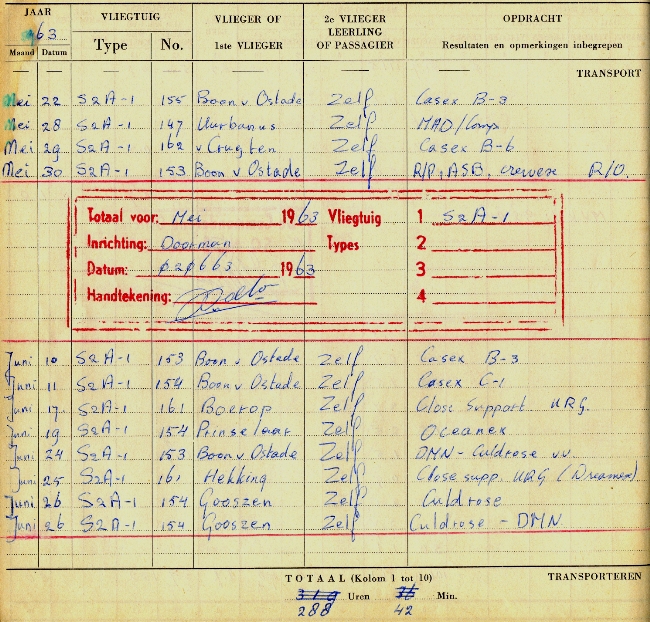 JAAR VLIEGTUIG VLIEGER OF 2e VLIEGER OPDRACHT
63 LEERLING
Maand Datum Type No. 1ste VLIEGER OF PASSAGIER Resultaten en opmerkingen inbegrepen
TRANSPORT
Mei 22 S2A-1 155 Boon v Ostade Zelf Casex B-3
Mei 28 S2A-1 147 Uurbanus Zelf MAD/Comp
Mei 29 S2A-1 162 v Crugten Zelf Casex B-6
Mei 30 S2A-1 153 Boon v Ostade Zelf R/P, ASB, R/O.
Totaal voor: Mei 1963 Vliegtuig 1 S2A-1
Inrichting: Doorman Types 2
Datum: 020663 1963 3
Handtekening: 4
Juni 10 S2A-1 153 Boon v Ostade Zelf Casex B-3
Juni 11 S2A-1 154 Boon v Ostade Zelf Casex C-1
Juni 17 S2A-1 161 Boerop Zelf Close Support URG.
Juni 19 S2A-1 154 Prinselaar Zelf Oceanex
Juni 24 S2A-1 153 Boon v Ostade Zelf DMN - Culdrose v.v.
Juni 25 S2A-1 161 Hekking Zelf Close supp. URG
Juni 26 S2A-1 154 Gooszen Zelf Culdrose
Juni 26 S2A-1 154 Gooszen Zelf Culdrose - DMN
TOTAAL (Kolom 1 tot 10) TRANSPORTEREN
319 Uren 36 Min.
288 42